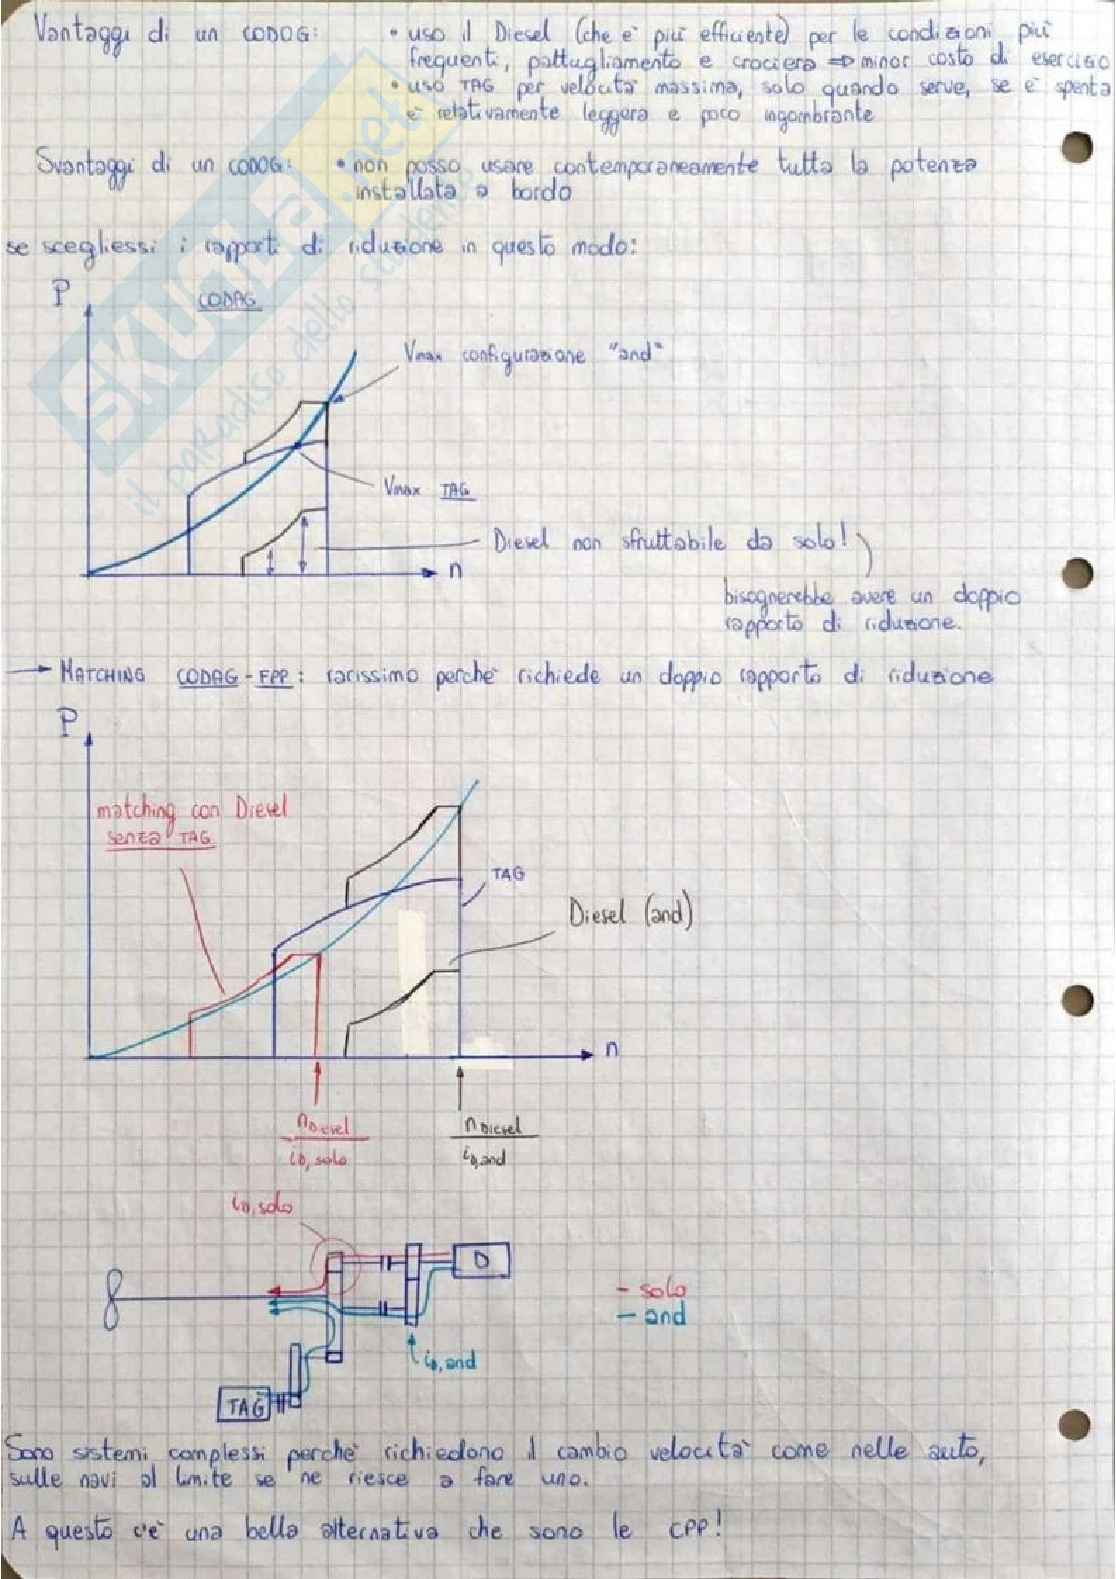 Vantaggi di un CODOG: • uso il Diesel (che è più efficiente) per le condizioni più
frequenti, pattugliamento e crociera => minor costo di esercizio
• uso TAG per velocità massima, solo quando serve, se è spenta
è relativamente leggera e poco ingombrante
Svantaggi di un CODOG: • non posso usare contemporaneamente tutta la potenza
installata a bordo
se scegliessi i rapporti di riduzione in questo modo:
P
CODAG
Vmax configurazione "and"
Vmax TAG
Diesel non sfruttabile da solo!
n
bisognerebbe avere un doppio
rapporto di riduzione.
→ MATCHING CODAG - FPP: rarissimo perchè richiede un doppio rapporto di riduzione
P
matching con Diesel
senza TAG
TAG
Diesel (and)
n
nDiesel
iD,solo
nDiesel
iD,and
iD,solo
D
- solo
- and
iD,and
TAG
Sono sistemi complessi perchè richiedono il cambio velocità come nelle auto,
sulle navi al limite se ne riesce a fare uno.
A questo c'è una bella alternativa che sono le CPP!
SKUOLA.net
il paradiso dello studente